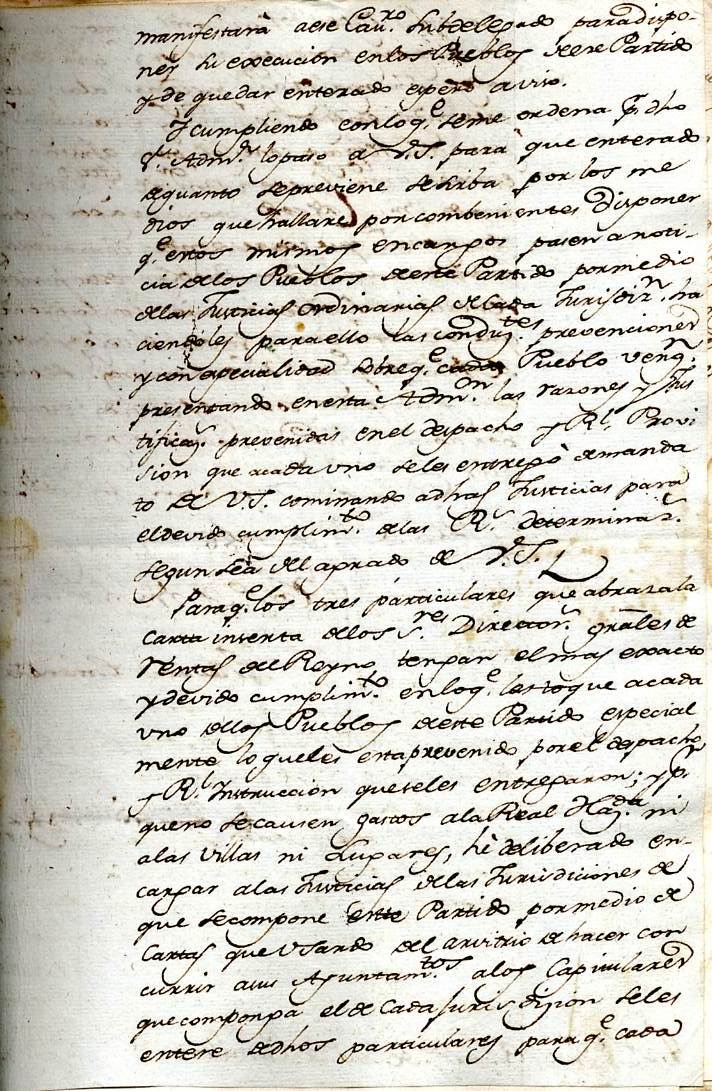 manifestará a ese Cavro. Subdelegado para dispo-
ner su execucion en los Pueblos de ese Partido
y de quedar enterado espero aviso.
Y cumpliendo con loqe. seme ordena pr. dho
Sr. Admr. lo paso a V.S. para que enterado
de quanto se previene se sirba por los me
dios que hallare por combenientes disponer
qe. estos mismos encargos pasen a noti-
cia de los Pueblos de este Partido por medio
de las Justicias ordinarias de cada Jurisdizn. ha
ciendoles para ello las condutes. prevenciones
y con especialidad sobre qe. cada Pueblo vengn.
presentando en esta Admon. las razones y Jus
tificans. prevenidas en el despacho y Rl. Provi
sion que a cada uno seles entregò de manda
to de V.S. cominando a dhas Justicias para
el devido cumplimto. de las Rs. determinazs.
segun sea del agrado de V.S.
Para qe. los tres particulares que abraza la
Carta inserta de los Sres. Directors. grales de
Rentas del Reyno tengan el mas exacto
y devido cumplimto. en loqe. les toque a cada
uno de los Pueblos de este Partido especial
mente lo que les esta prevenido por el despacho
y Rl. Instruccion que seles entregaron; y pa.
que no se causen gastos a la Real Hazda. ni
a las Villas ni Lugares, hè deliberado en-
cargar a las Justicias de las Jurisdiciones de
que se compone este Partido por medio de
Cartas que usando del arvitrio de hacer con
currir a sus Ayuntamtos. a los Capitulares
que componga el de Cada Jurisdizion seles
entere de dhos particulares para qe. cada